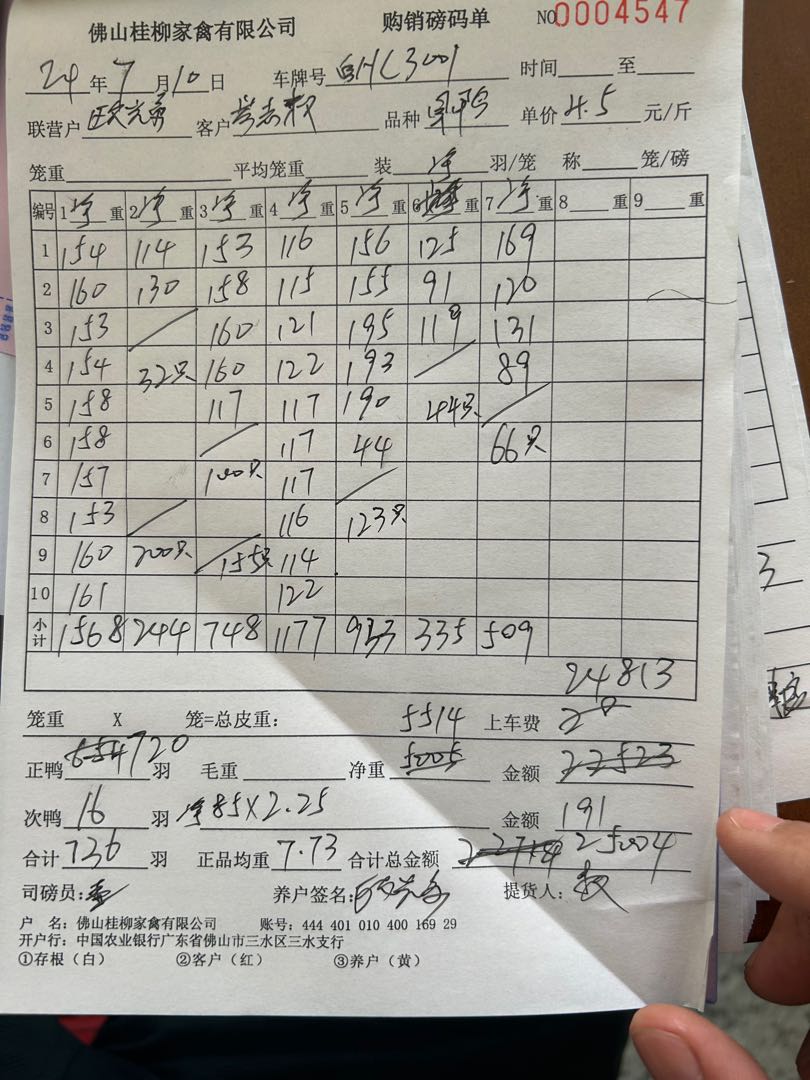 佛山桂柳家禽有限公司 购销磅码单 NO0004547
24年7月10日 车牌号 HC3001 时间____至____
联营户 客户 品种 单价 4.5 元/斤
笼重 平均笼重 装 净 羽/笼 称 笼/磅
编号 1 净 重 2 净 重 3 净 重 4 净 重 5 净 重 6 重 7 净 重 8 重 9 重
1 154 114 153 116 156 125 169
2 160 130 158 115 155 91 120
3 153 / 160 121 195 119 131
4 154 32只 160 122 193 / 89
5 158 117 117 190 44只 /
6 158 / 117 44 66只
7 157 100只 117 /
8 153 / 116 123只
9 160 200只 155只 114
10 161 122
小计 1568 244 748 1177 933 335 509
24813
笼重 X 笼=总皮重: 5514 上车费 20
正鸭 654 720 羽 毛重 净重 5005 金额 22523
次鸭 16 羽 净85X2.25 金额 191
合计 736 羽 正品均重 7.73 合计总金额 25004
司磅员: 养户签名: 提货人:
户 名: 佛山桂柳家禽有限公司 账号: 444 401 010 400 169 29
开户行: 中国农业银行广东省佛山市三水区三水支行
①存根（白） ②客户（红） ③养户（黄）